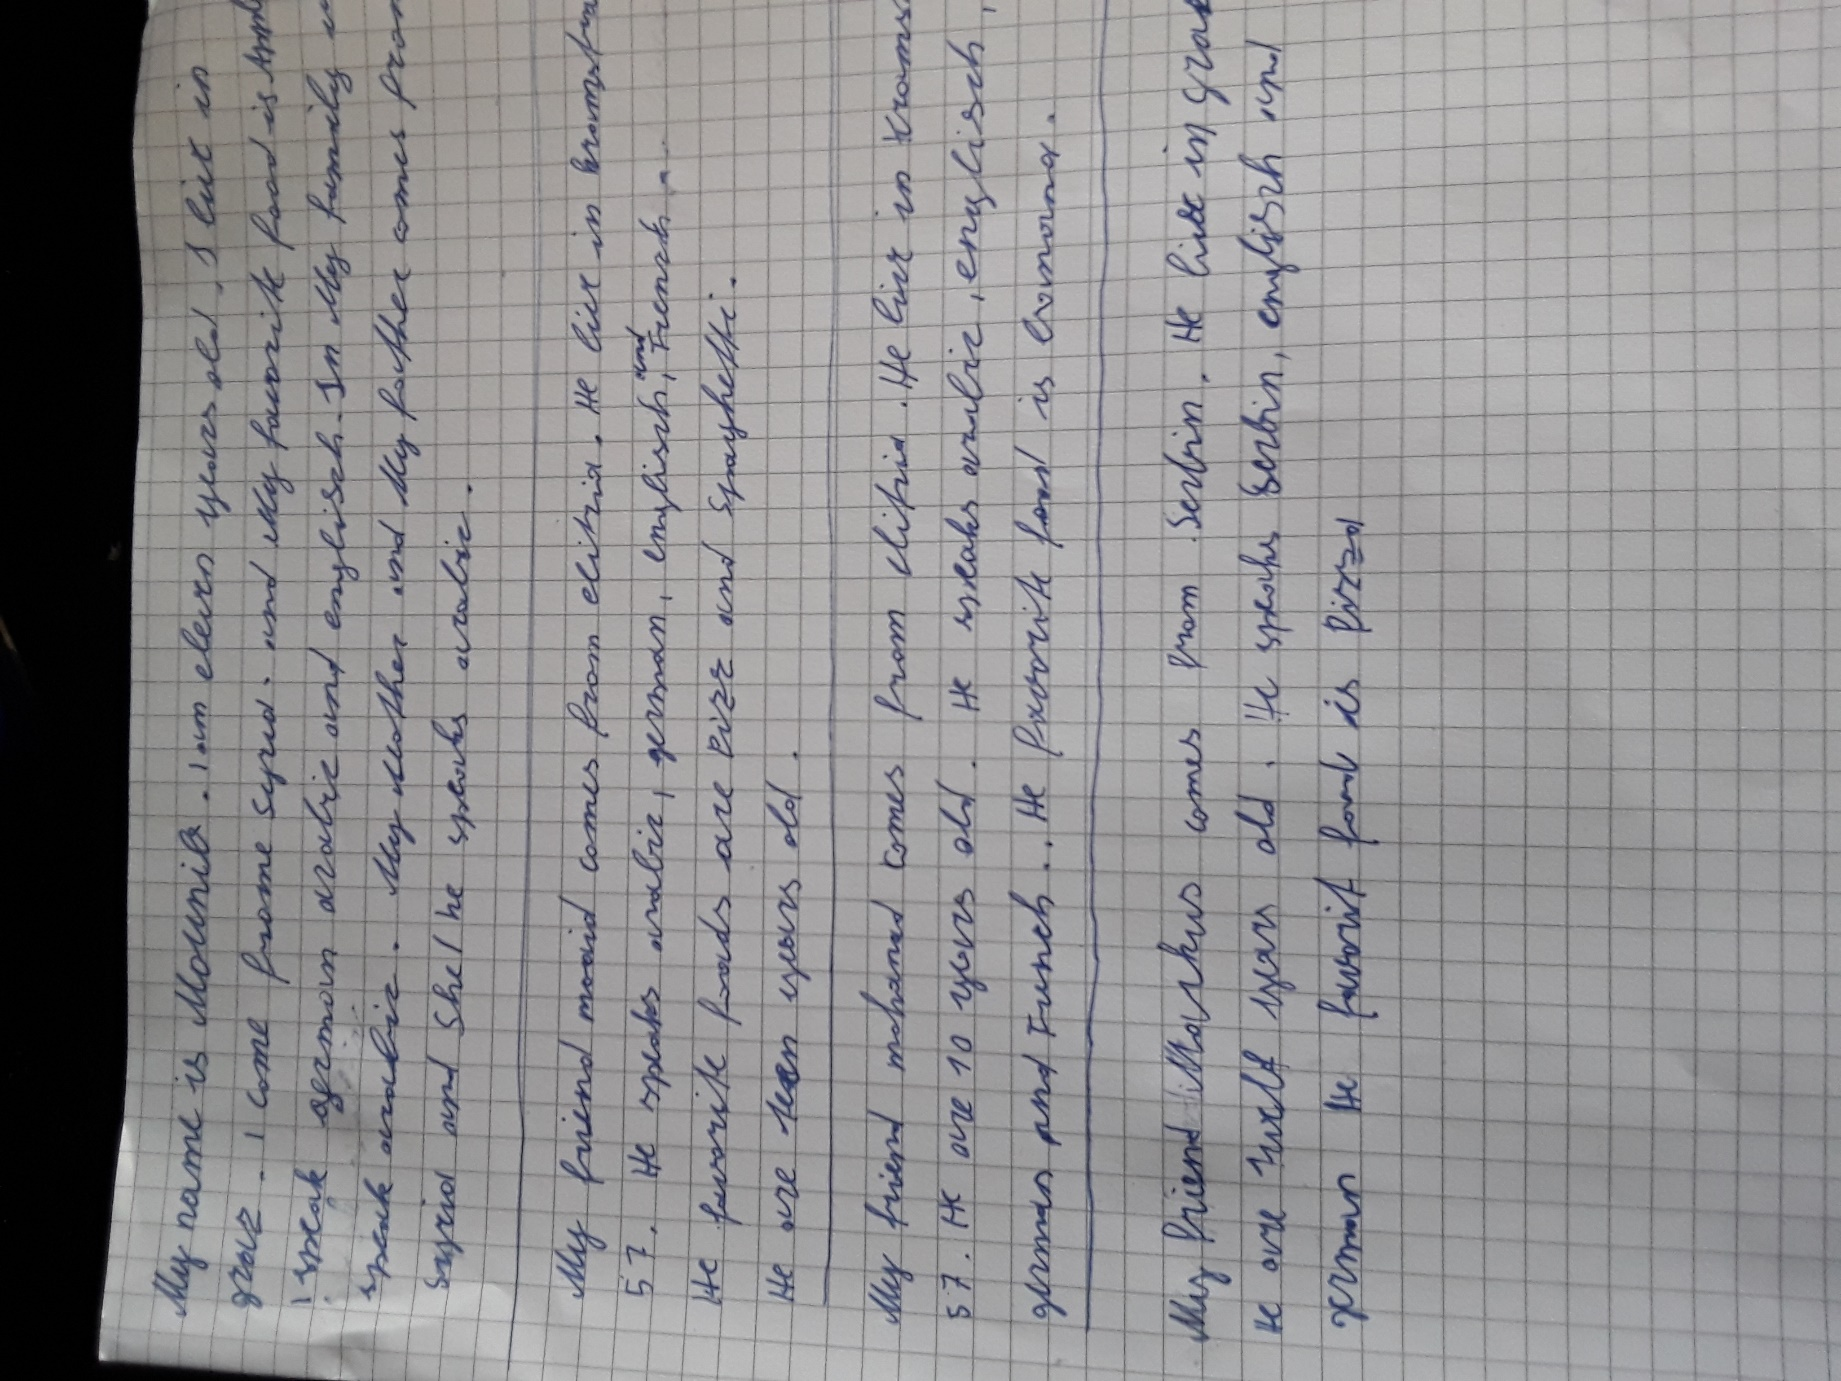 My name is Mounib. I am eleven years old. I live in
graz. I come frome syria. and My favorite food is
I speak german arabic and englisch. In My family
speak arabic. My Mother and My father comes from
Syria and She / he speaks arabic.
My friend comes from elitria. He live in
57. He speaks arabic, german, englisch, and French.
He favorite foods are Pizz and spaghetti.
He are teen years old.
My friend mohamed comes from elitria. He live in
57. He are 10 years old. He speaks arabic, englisch,
german and Frunch.. He favorite food is banana.
My friend Markus comes from Serbin. He live in graz
He are years old. He speaks Serbin, englisch and
german He favorit food is Pizza